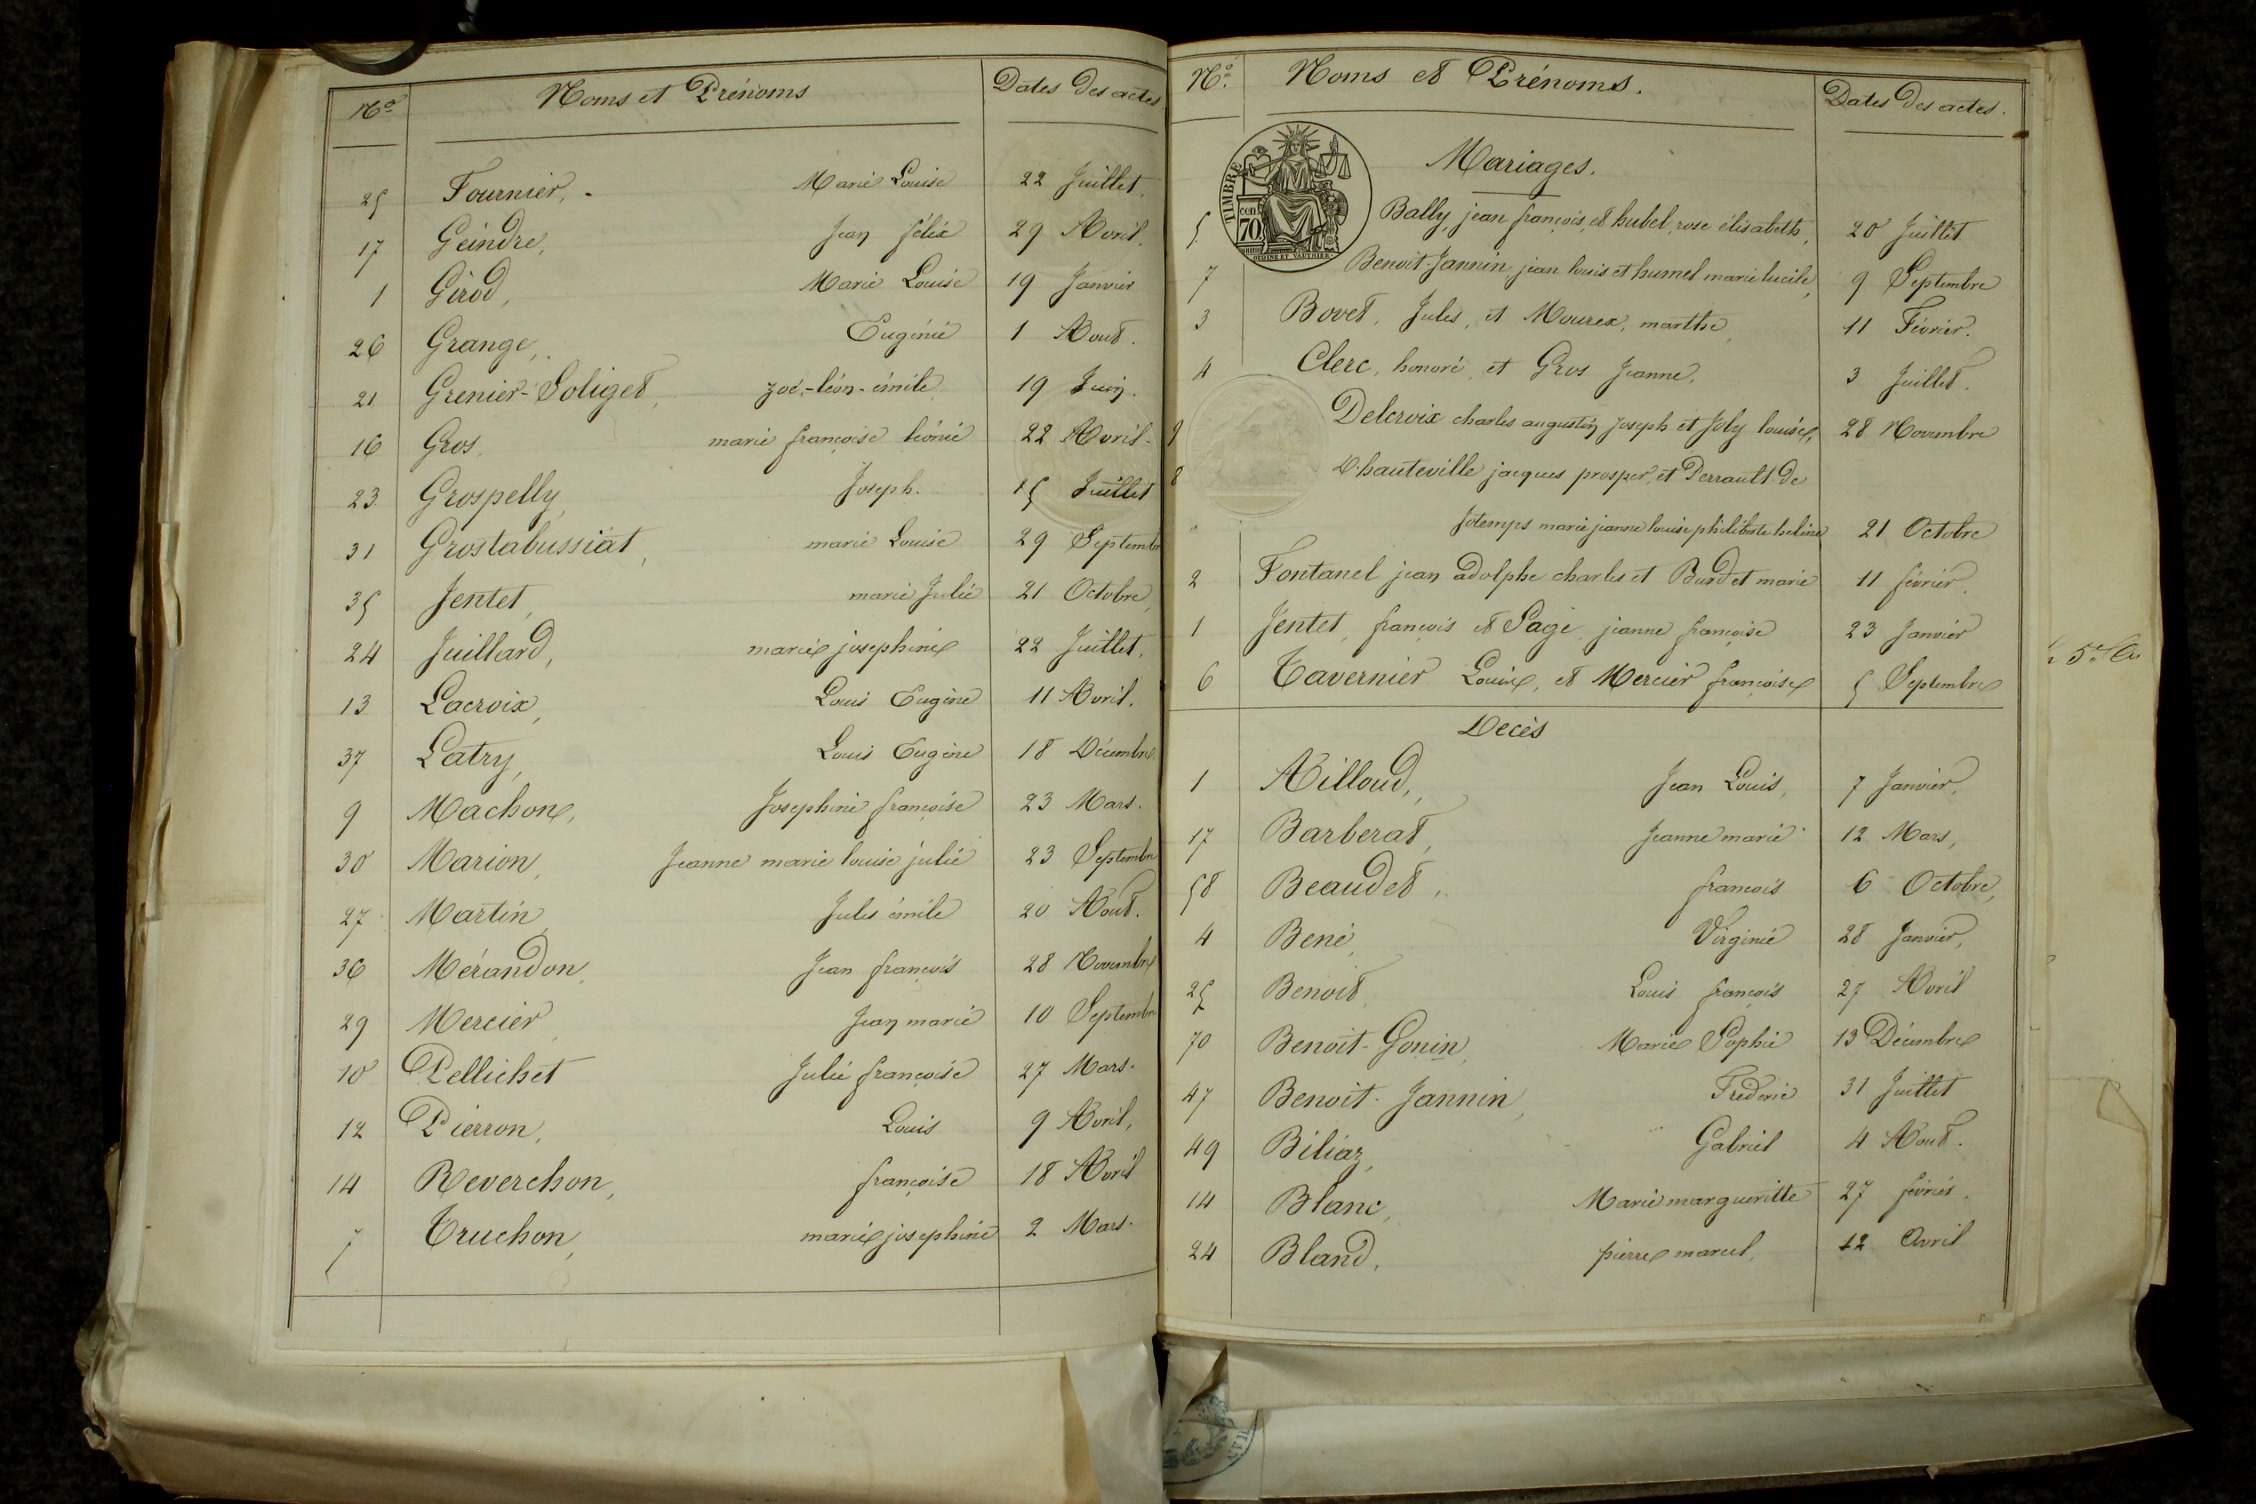 No Noms et Prénoms Dates des actes
25 Fournier, Marie Louise 22 Juillet.
17 Geindre, Jean félix 29 Avril.
1 Girod, Marie Louise 19 Janvier
26 Grange, Eugénie 1 Aout.
21 Grenier-Soliget, zoé-léon-émile 19 Juin.
16 Gros, marie françoise léonie 22 Avril.
23 Grospelly, Joseph. 15 Juillet
31 Grostabussiat, marie Louise 29 Septembre
35 Jentet, marie Julie 21 Octobre,
24 Juillard, marie josephine 22 Juillet.
13 Lacroix, Louis Eugène 11 Avril.
37 Latry, Louis Eugène 18 Décembre
9 Machon, Josephine françoise 23 Mars.
30 Marion, Jeanne marie louise julie 23 Septembre
27 Martin, Jules émile 20 Aout.
36 Mérandon, Jean françois 28 Novembre
29 Mercier, Jean marie 10 Septembre
10 Pellichet Julie françoise 27 Mars.
12 Pierron, Louis 9 Avril,
14 Reverchon, françoise 18 Avril
7 Truchon, marie josephine 2 Mars.
No. Noms et Prénoms. Dates des actes.
TIMBRE
70
Mariages.
5 Bally, jean françois, et hubel, rose élisabeth, 20 Juillet
7 Benoit-Jannin, jean louis et humel marie lucile, 9 Septembre
3 Bovet, Jules, et Mourex, marthe, 11 Février.
4 Clerc, honoré, et Gros Jeanne. 3 Juillet.
9 Delcroix charles augustin joseph et Joly louise, 28 Novembre
8 D'hauteville jacques prosper, et Perrault De
Jotemps marie jeanne louise philiberte helène 21 Octobre
2 Fontanel jean adolphe charles et Burdet marie 11 février.
1 Jentet, françois et Page jeanne françoise 23 Janvier
6 Tavernier Louis, et Mercier françoise 5 Septembre
Decès
1 Ailloud, Jean Louis, 7 Janvier.
17 Barberat, Jeanne marie 12 Mars,
58 Beaudet, françois 6 Octobre,
4 Bené, Virginie 28 Janvier,
25 Benoit, Louis françois 27 Avril
70 Benoit-Gonin, Marie Sophie 13 Décembre
47 Benoit-Jannin, Frédéric 31 Juillet
49 Biliaz, Gabriel 4 Aout.
14 Blanc, Marie margueritte 27 février.
24 Bland, pierre marcel, 12 Avril